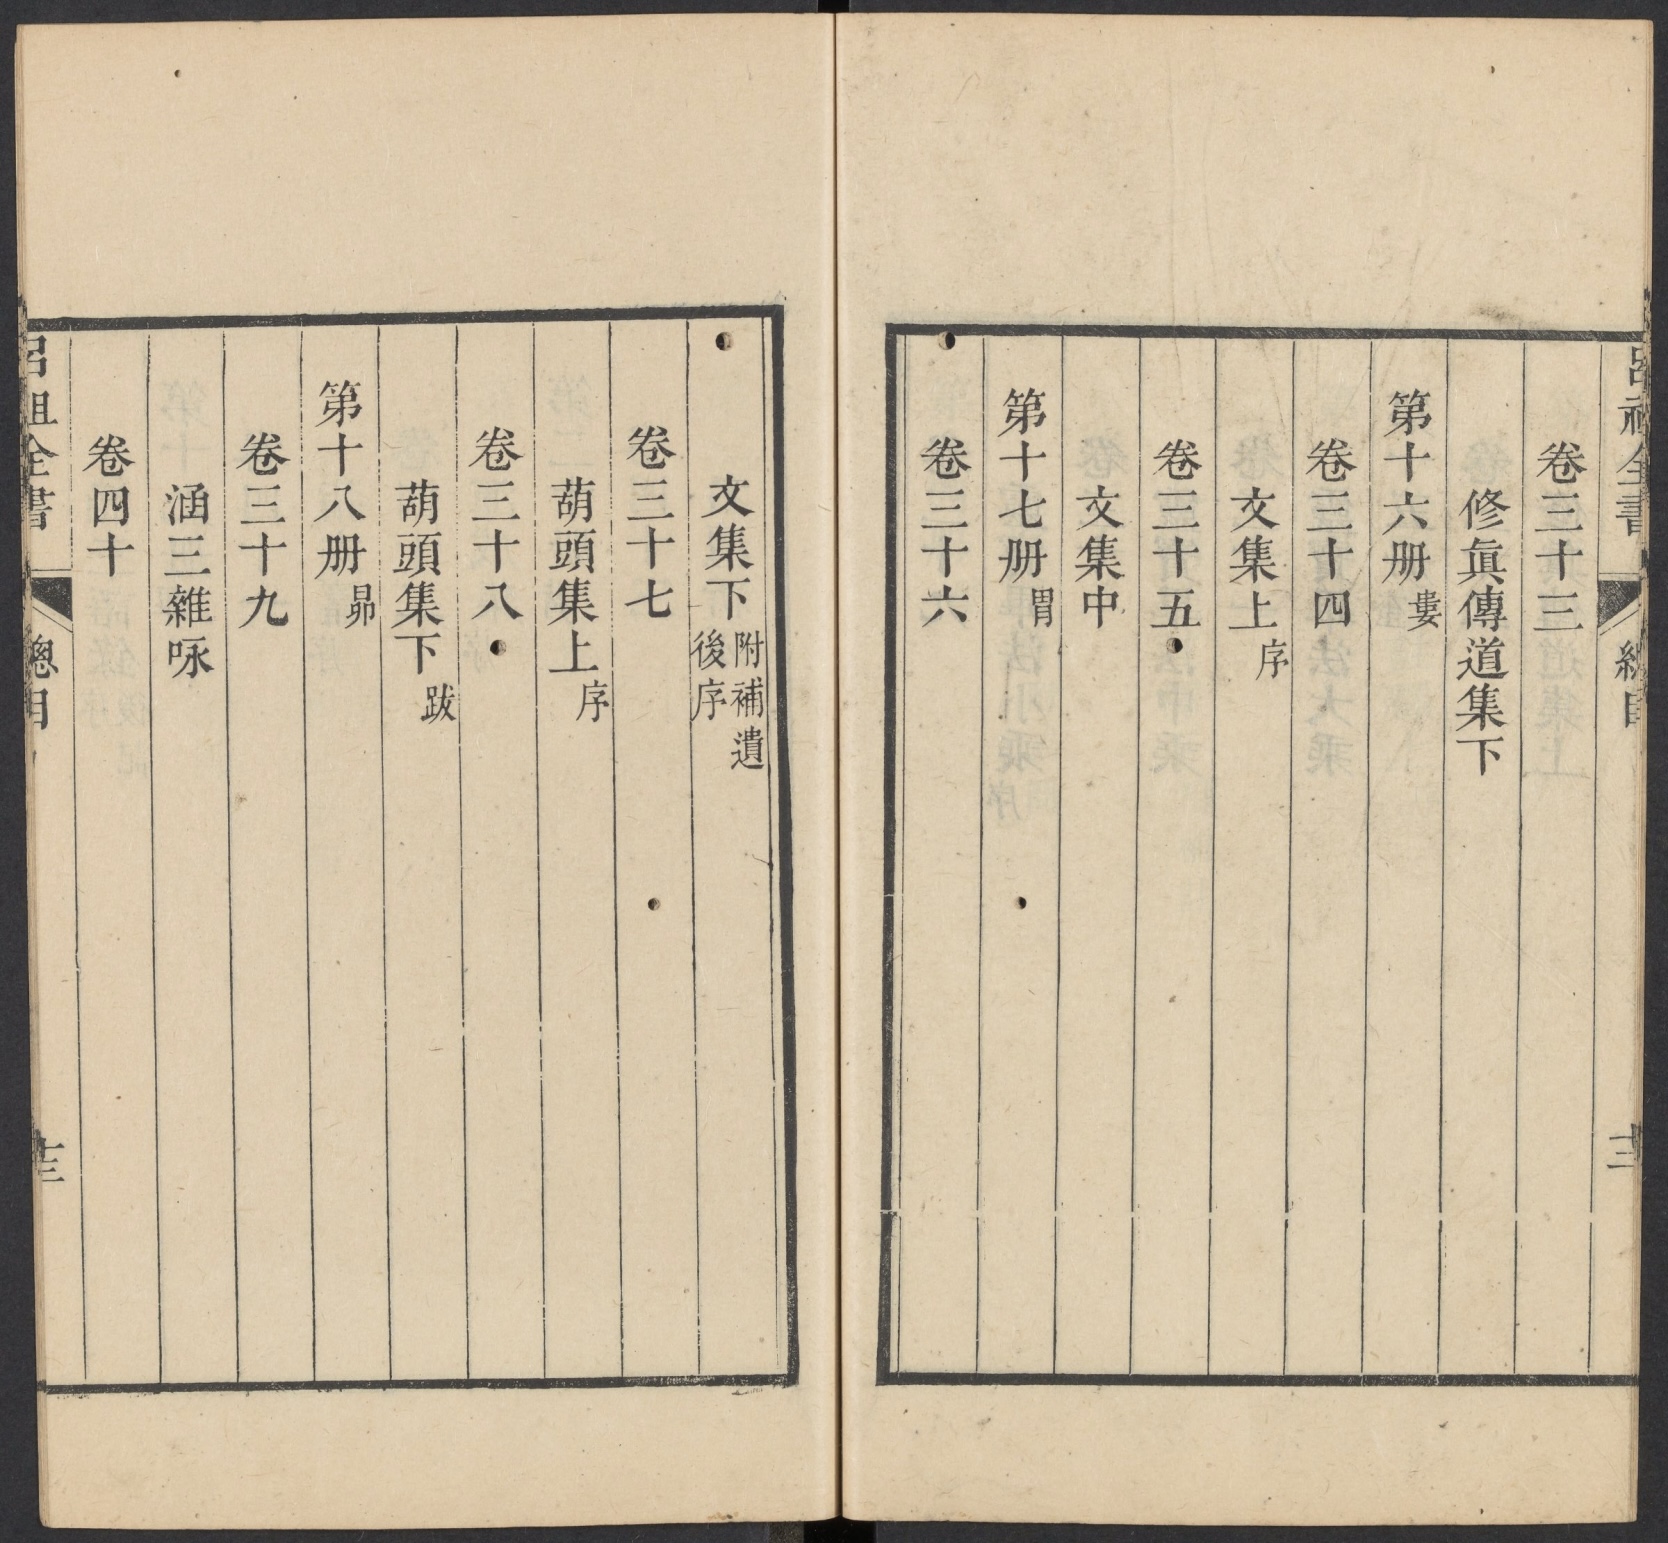 呂祖全書 總目
卷三十三
修眞傳道集下
第十六册 婁
卷三十四
文集上 序
卷三十五
文集中
第十七册 胃
卷三十六
文集下 附補遺 後序
卷三十七
葫頭集上 序
卷三十八
葫頭集下 跋
第十八册 昴
卷三十九
涵三雜咏
卷四十
呂祖全書 總目